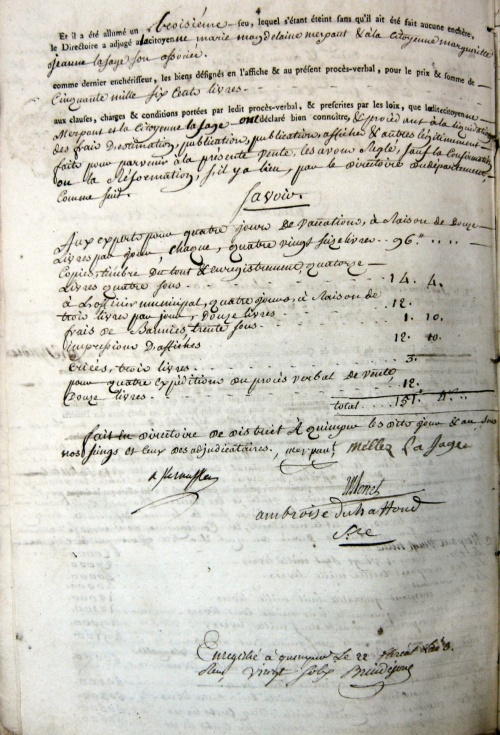 Et il a été allumé un troisième feu, lequel s'étant éteint sans qu'il ait été fait aucune enchère,
le Directoire a adjugé à la citoyenne marie magdelaine merpaut & à la citoyenne marguerite
jeanne lasage son associée
comme dernier enchérisseur, les biens désignés en l'affiche & au présent procès-verbal, pour le prix & somme de
Cinquante mille six Cents livres
aux clauses, charges & conditions portées par ledit procès-verbal, & prescrites par les loix, que ladite citoyenne
Merpaut et la citoyenne lasage ont déclaré bien connoître, & procédant à la liquidation
des frais D'estimation, publication, affiches & autres légitimement
faits pour parvenir à la présente Vente, les avons Réglé, sauf la Confirmation
ou la Réformation, s'il y a lieu, par le directoire du département,
Comme suit.
Savoir.
Aux experts pour quatre jours de Vacations, à Raison de Douze
Livres par jour, chaque, quatre vingt seize livres .. 96 " .. ..
Copie, timbre Du tout & enregistrement quatorze
Livres quatre sous 14. 4.
à L'officier municipal, quatre jours, à Raison de
trois livres par jour, Douze livres 12.
frais de Bannies, trente sous 1. 10.
impressions D'affiches 12. 10.
Criées, trois livres 3.
pour quatre expéditions du procès verbal de Vente,
Douze livres 12.
total 151. 4.
fait en Directoire de District à quimper les dits jour & an sous
nos seings et ceux des adjudicataires. merpaut Lasage
ambroise du haffond
Enregistré à quimper Le 22